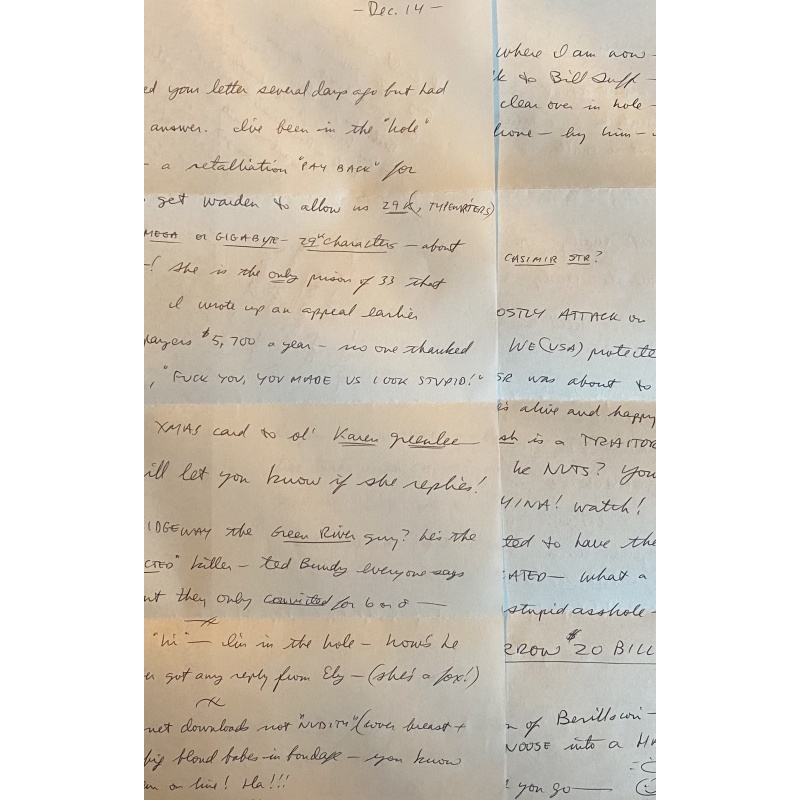 - Dec. 14 -
ed your letter several days ago but had
answer. I've been in the "hole"
- a retalliation "PAY BACK" for
get warden to allow us 29K, TYPEWRITERS)
MEGA or GIGABYTE - 29K characters - about
-! She is the only prison of 33 that
I wrote up an appeal earlier
payers $5,700 a year - no one thanked
, "FUCK YOU, YOU MADE US LOOK STUPID!"
XMAS card to ol' Karen greenlee
ill let you know if she replies!
IDGEWAY the Green River guy? he's the
CTED" killer - ted Bundy everyone says
ut they only convicted for 6 or 8 -
"hi" - I'm in the hole - how's he
got any reply from Ely - (she's a fox!)
net downloads not "NUDITY" (cover breast +
big blond babes-in bondage - you know
on line! Ha!!!
where I am now -
k to Bill Suff -
clear over in hole -
hone - by him -
CASIMIR STR?
OSTLY ATTACK on
WE (USA) protecte
SR was about to
es alive and happy
sh is a TRAITOR
he NUTS? You
INA! watch!
ted to have the
ATED - what a
stupid asshole -
RROW $20 BILL
of Berillson -
NOOSE into a HA
you go -